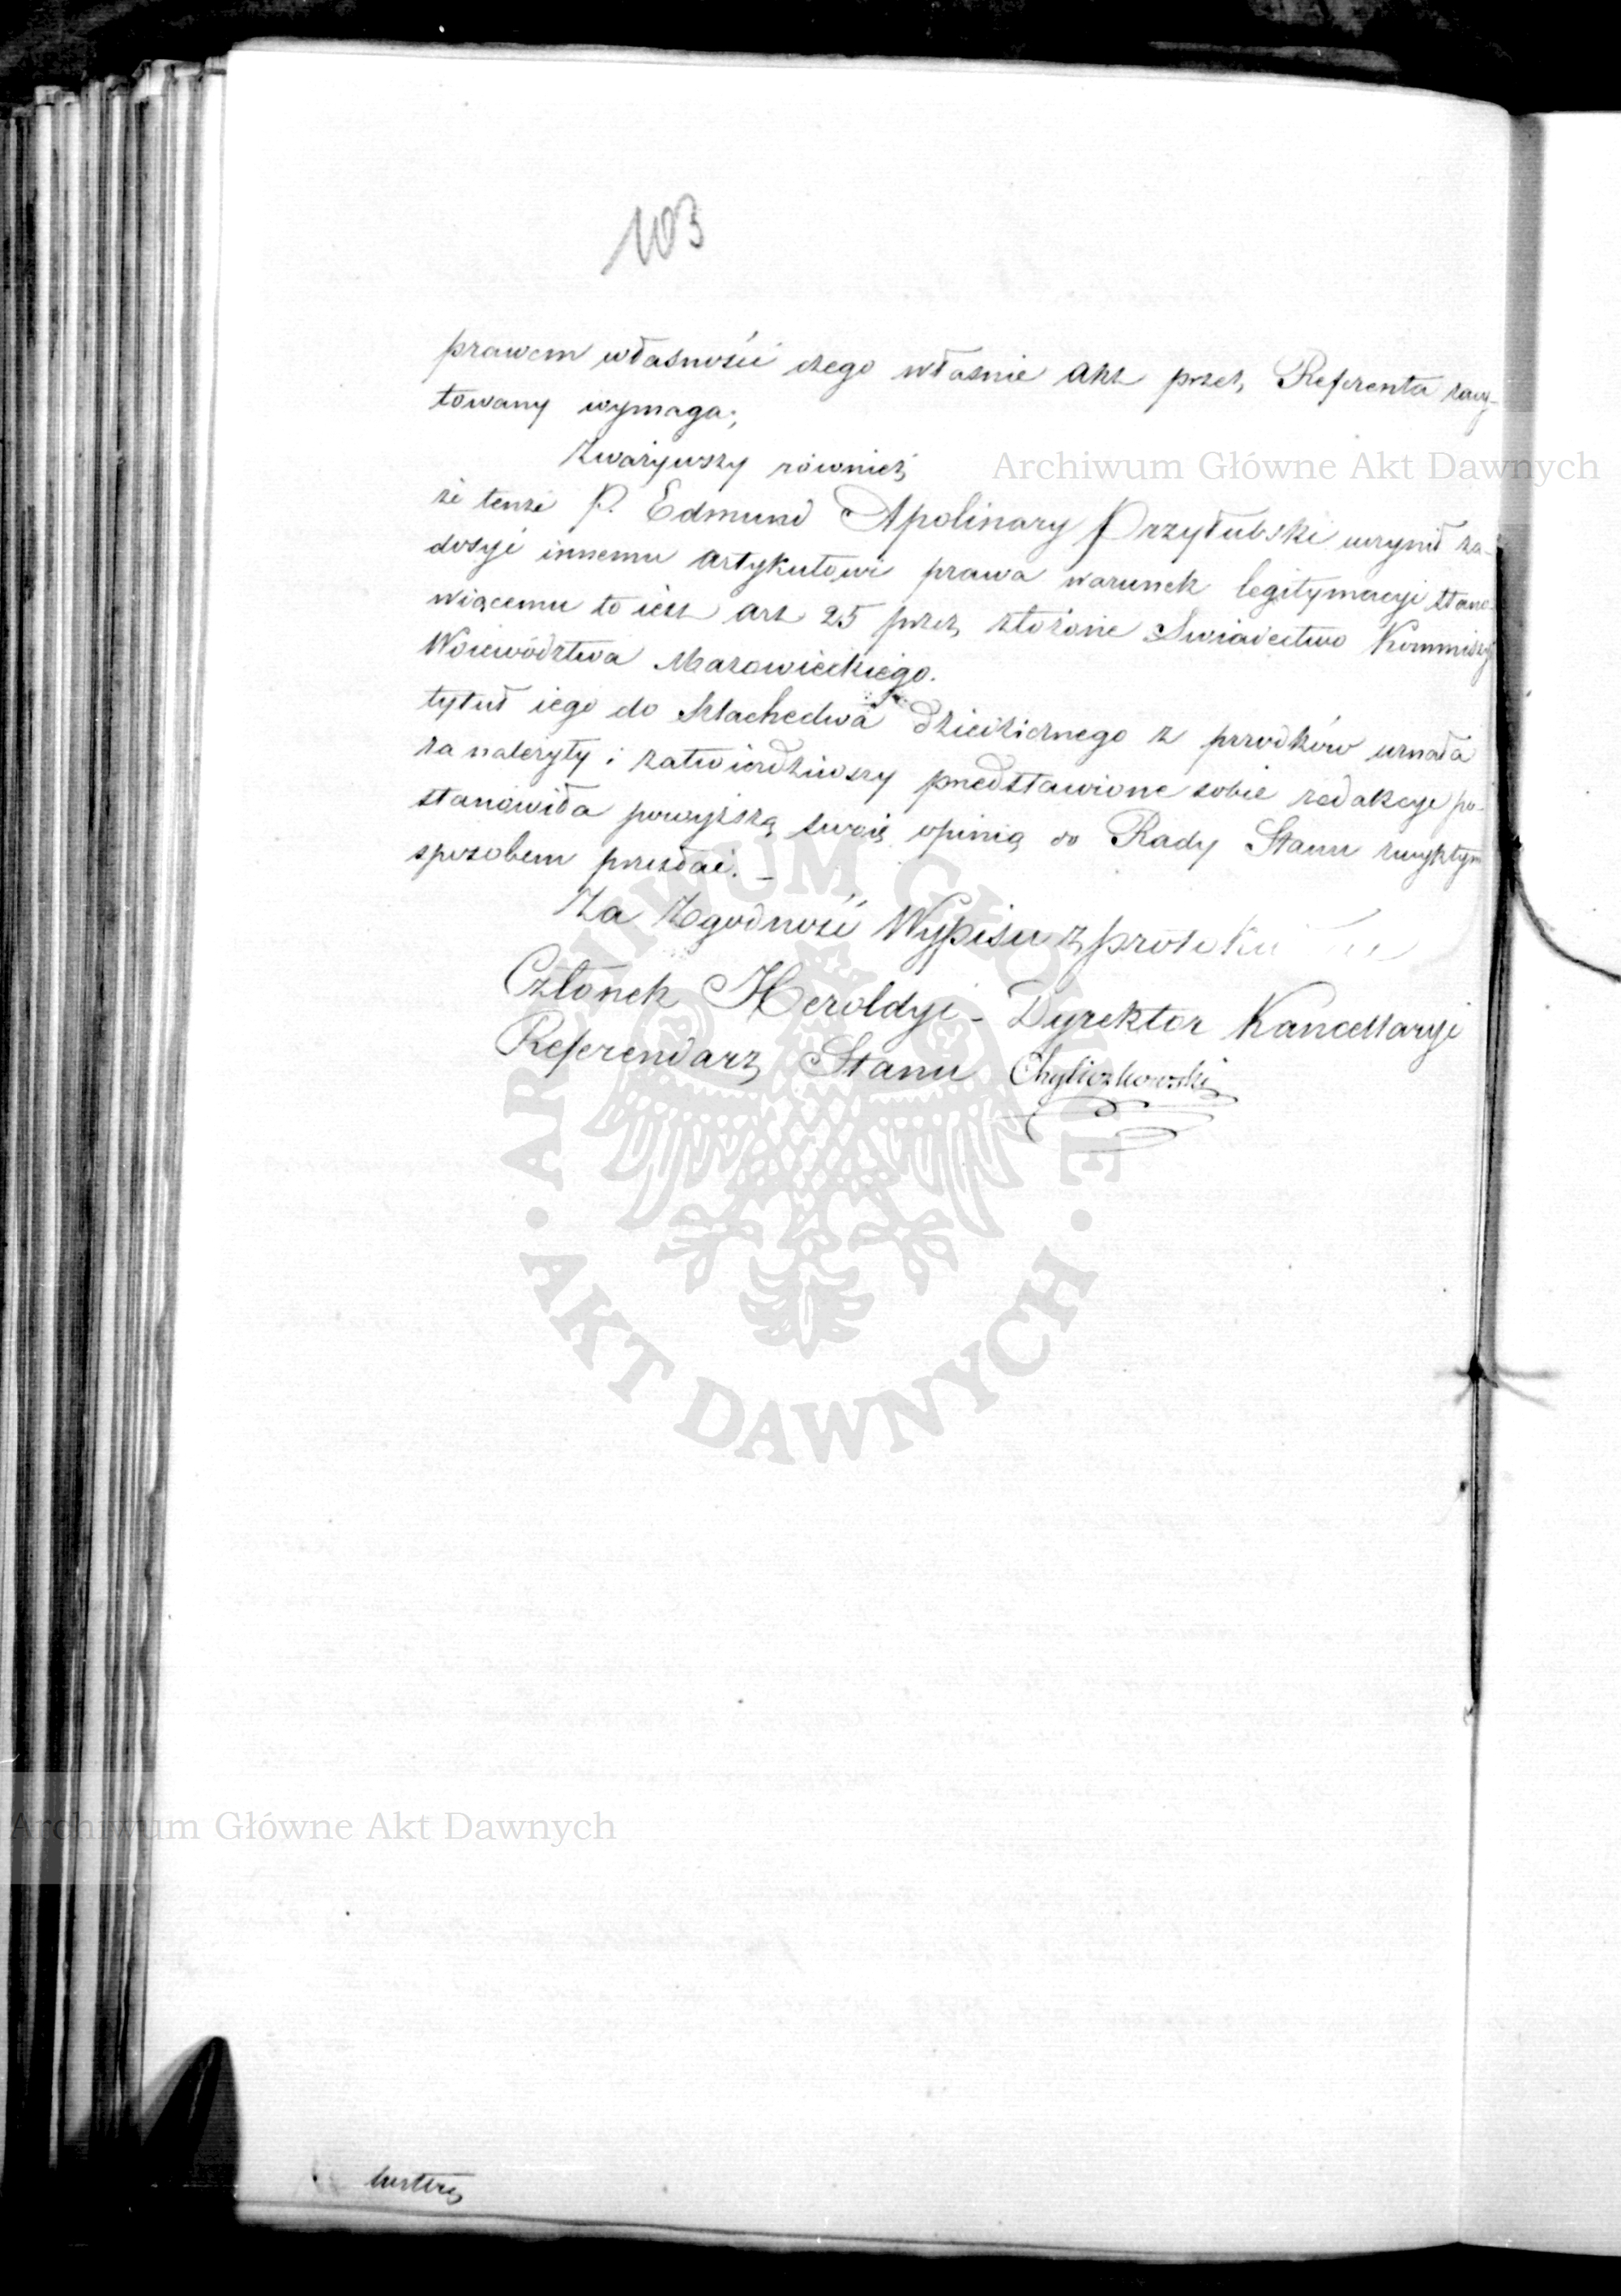 103
prawem własności czego właśnie Akt przez Referenta zacy-
towany wymaga;
Zważywszy również
że tenże P. Edmund Apolinary Przyłubski uczynił za-
dosyć innemu Artykułowi prawa warunek legitymacyi stano-
wiącemu to iest Art 25 przez złożone Swiadectwo Kommissyi
Woiewództwa Mazowieckiego.
tytuł iego do Szlachectwa dziedzicznego z przodków uznała
za należyty i zatwierdziwszy przedstawione sobie redakcye po-
stanowiła powyższą swoią opinią do Rady Stanu zwykłym
sposobem przesłać. _
Za Zgodność Wypisu z proto
Członek Heroldyi - Dyrektor Kancellaryi
Referendarz Stanu Chyliczkowski
Archiwum Główne Akt Dawnych
ARCHIWUM GŁÓWNE
· AKT DAWNYCH ·
Archiwum Główne Akt Dawnych